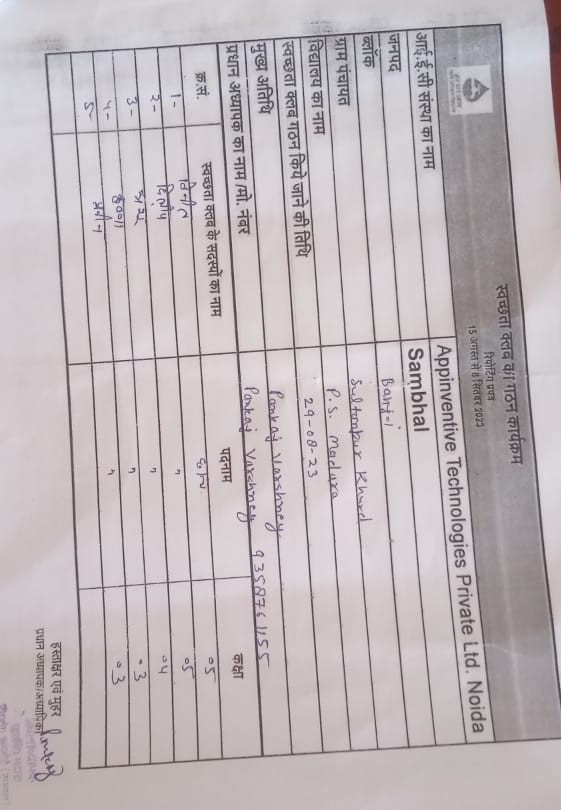 स्वच्छता क्लब का गठन कार्यक्रम
रिपोर्टिंग प्रपत्र
15 अगस्त से 8 सितंबर 2023
आई.ई.सी संस्था का नाम Appinventive Technologies Private Ltd. Noida
जनपद Sambhal
ब्लॉक
ग्राम पंचायत Sultanpur Khurd
विद्यालय का नाम P.S. Madara
स्वच्छता क्लब गठन किये जाने की तिथि 29-08-23
मुख्य अतिथि Pankaj Varshney
प्रधान अध्यापक का नाम /मो. नंबर Pankaj Varshney 9358761155
क्र.सं. स्वच्छता क्लब के सदस्यों का नाम पदनाम कक्षा
1- विनीत 05
2- दिलीप " 05
3- " 04
4- " 03
5- " 03
हस्ताक्षर एवं मुहर
प्रधान अध्यापक/अध्यापिका